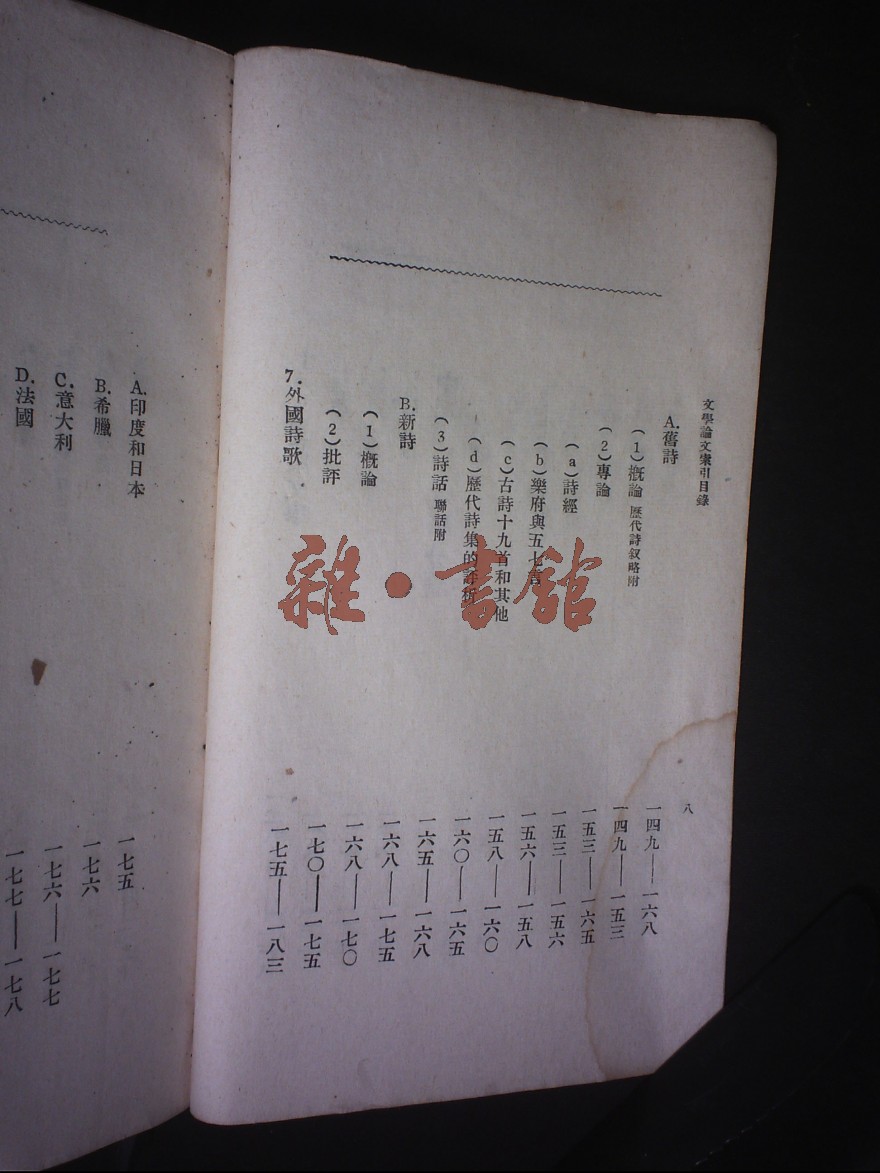 文學論文索引目錄 八
A.舊詩 一四九——一六八
(1)概論 歷代詩叙略附 一四九——一五三
(2)專論 一五三——一六五
(a)詩經 一五三——一五六
(b)樂府與五七言 一五六——一五八
(c)古詩十九首和其他 一五八——一六〇
(d)歷代詩集的評析 一六〇——一六五
(3)詩話 聯話附 一六五——一六八
B.新詩 一六八——一七五
(1)概論 一六八——一七〇
(2)批評 一七〇——一七五
7.外國詩歌 一七五——一八三
A.印度和日本 一七五
B.希臘 一七六
C.意大利 一七六——一七七
D.法國 一七七——一七八
雜·書館